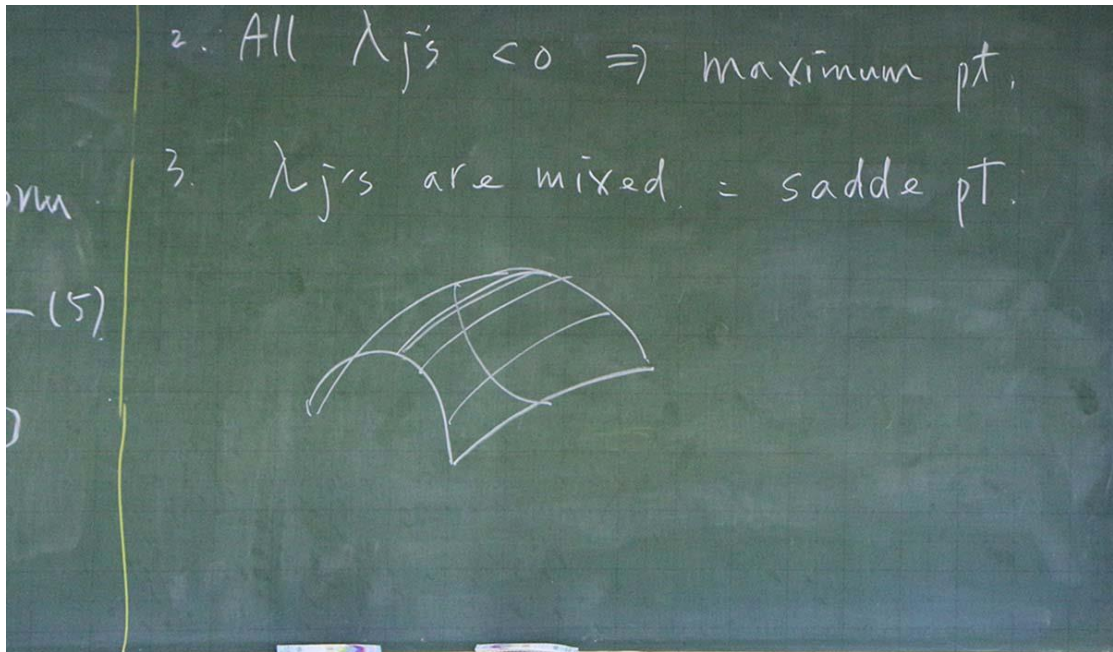 2. All λj's < 0 ⇒ maximum pt.
3. λj's are mixed = sadde pt.
(5)